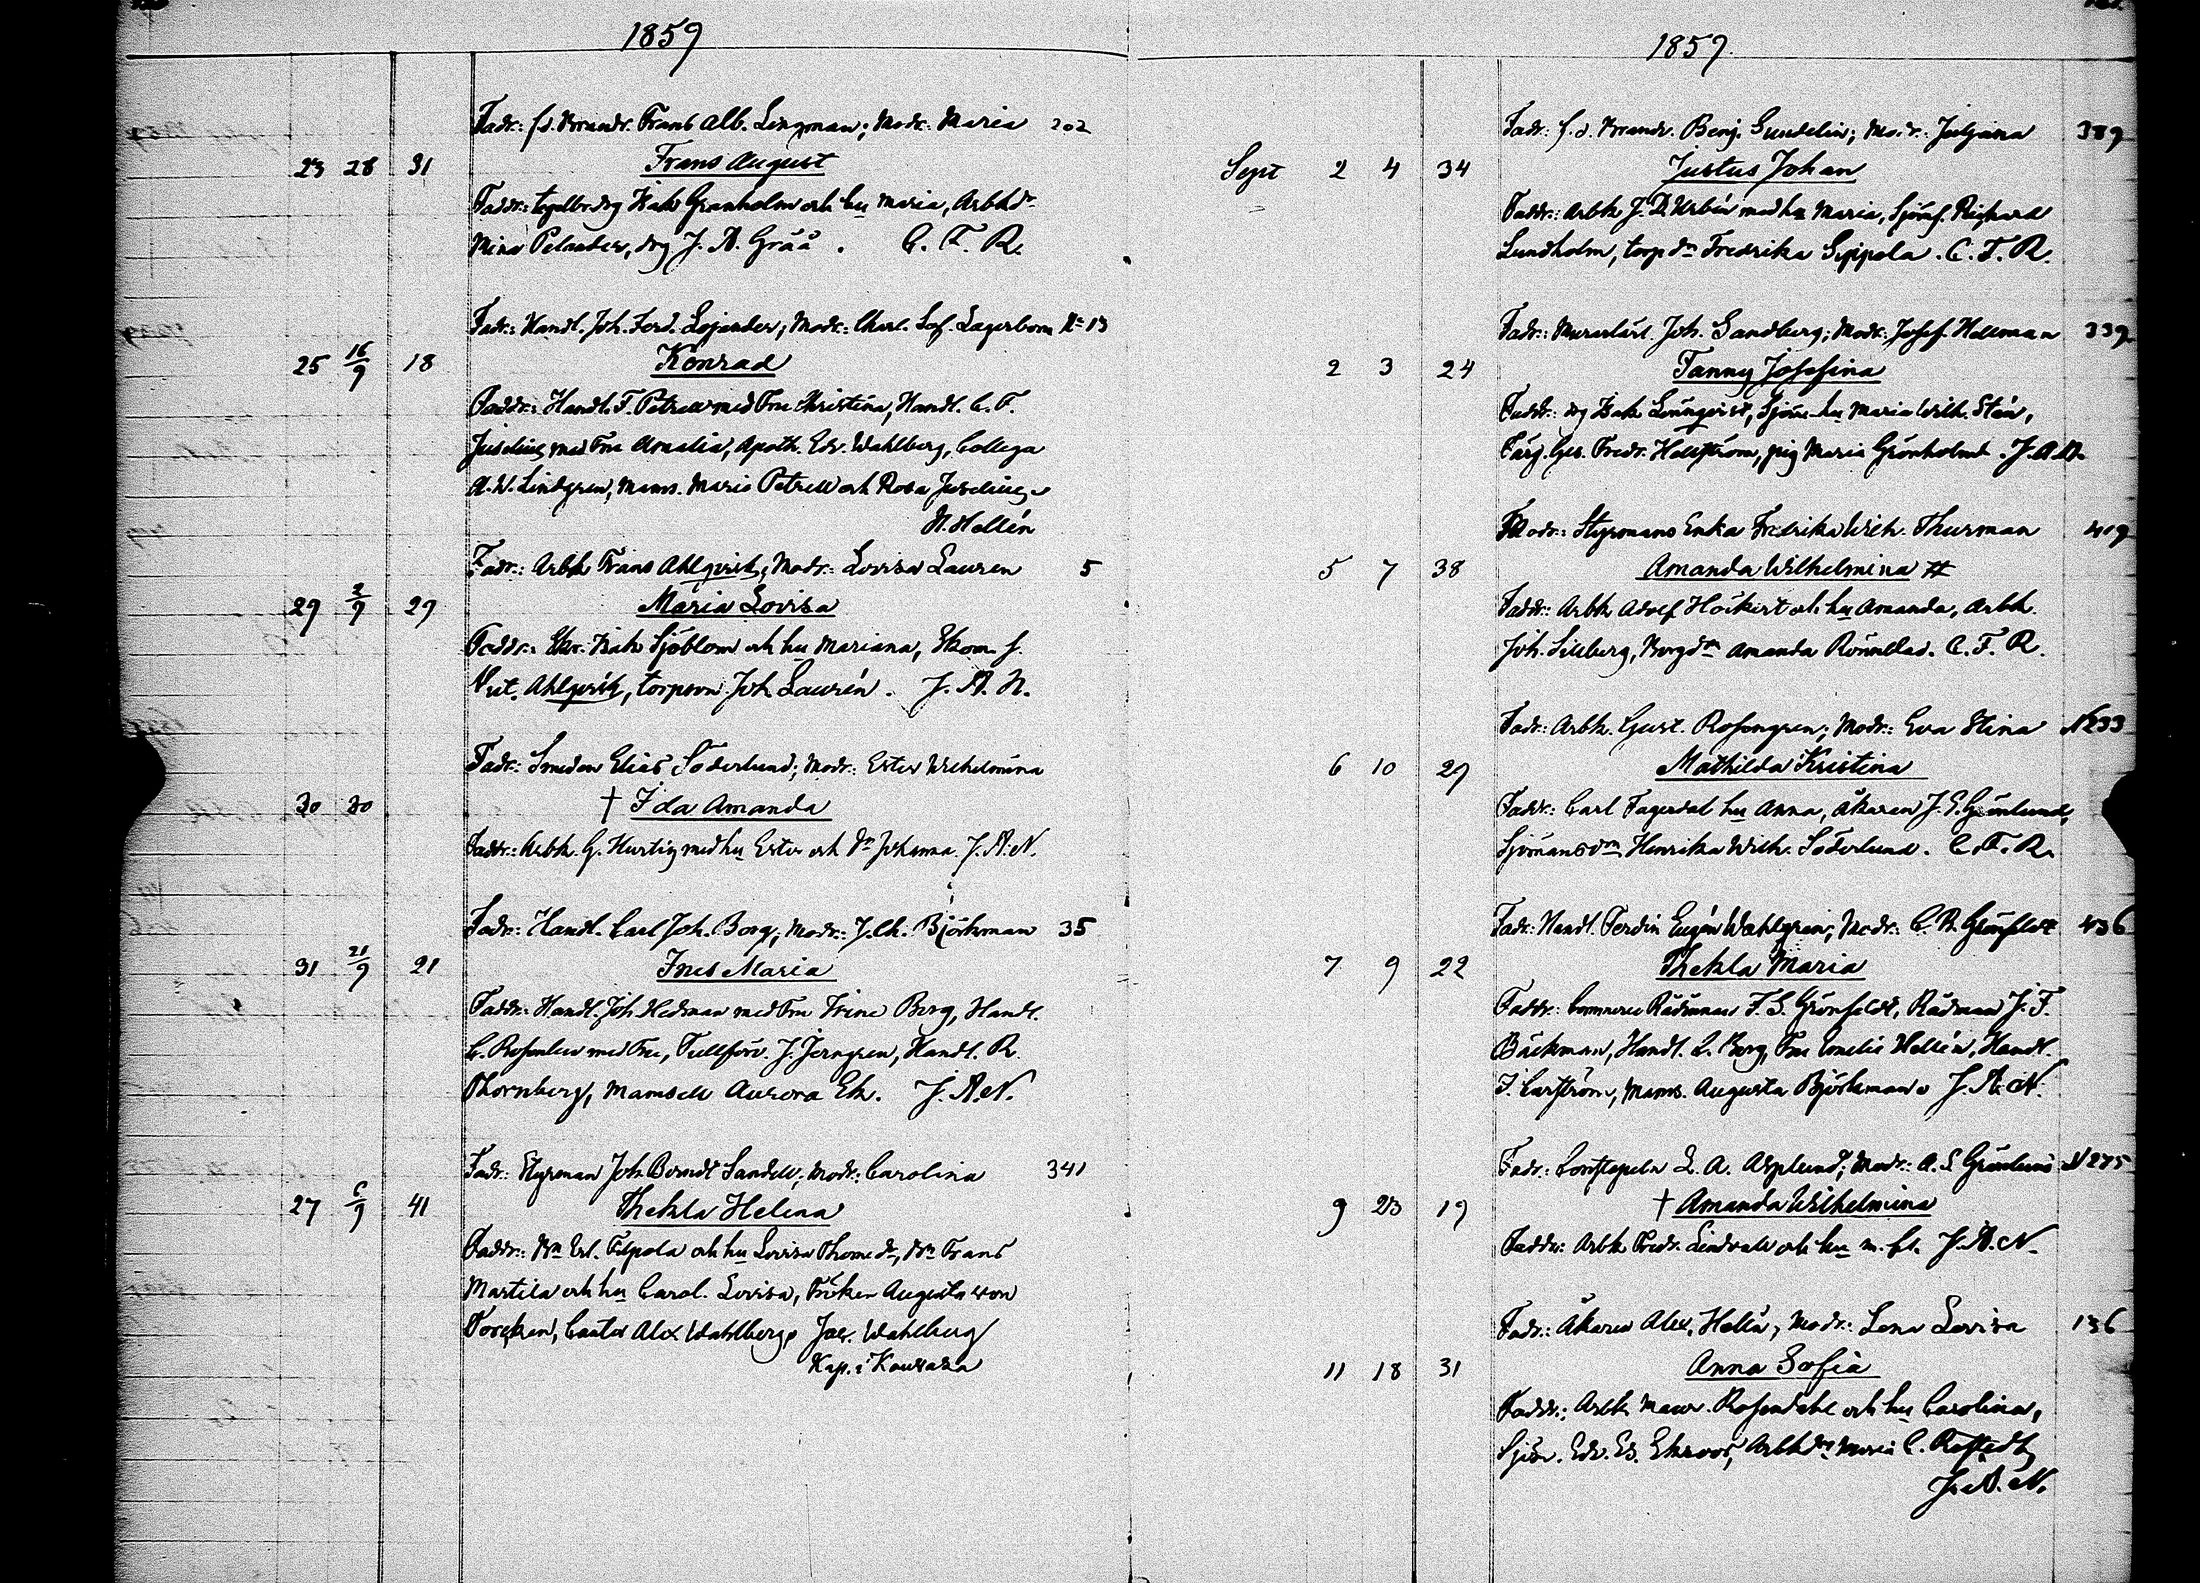 1859
Fadr: Frans Alb. Lingman; Modr: Maria 202
23 28 31 Frans August
Faddr: Isak Granholm och hu Maria, Arbkdr
Mina Pelander, drg J. A. Gråå. C. F. R.
Fadr: Handl. Joh. Ferd. Lojander; Modr: Charl. Sof. Lagerbom No 13
25 16/9 18 Konrad
Faddr: Handl. F. Petrell med Fru Christina, Handl. C. F.
Juselius med Fru Amalia, Apoth. Edv. Wahlberg, Collega
A. W. Lindgren, Mams. Maria Petrell och Rosa Juselius.
N. Hellén
Fadr: Arbk Frans Ahlqvist, Modr: Lovisa Lauren 5
29 2/9 29 Maria Lovisa
Faddr: Isak Sjöblom och hu Mariana,
Ahlqvist, torpson Joh. Laurén. J. A. N.
Fadr: Smeden Elias Söderlund; Modr: Ester Wilhelmina
30 30 † Ida Amanda
Faddr: Arbk. G. Hurtig med hu Ester och Dr Johanna. J. A. N.
Fadr: Handl. Carl Joh. Borg; Modr: J. Ch. Björkman 35
31 21/9 21 Ines Maria
Faddr: Handl. Joh. Hedman med Fru Irine Borg, Handl.
C. Rosenlew med Fru, Tullförv. J. Jerngren, Handl. R.
Thornberg, Mamsell Aurora Ek. J. A. N.
Fadr: Styrman Joh. Berndt Sandell, Modr: Carolina 341
27 6/9 41 Thekla Helena
Faddr: Filpola och hu Lovisa Frans
Martila och hu Carol. Lovisa, Fröken Augusta von
Cantor Alex Wahlberg, Jac. Wahlberg
Kap. i Kauvatsa
1859.
Fadr: f. d. Benj. Sundelin; Modr: Juljana 389
Sept 2 4 34 Justus Johan
Faddr: Arbk J. D. Urbén med hu Maria, Sjöm. Rickard
Lundholm, torp dr Fredrika Sippola. C. F. R.
Fadr: Murarlärl. Joh. Sandberg; Modr: Josef. Hellman 339
2 3 24 Fanny Josefina
Faddr: drg Isak Lönnqvist, Sjöm. hu Maria Wilh. Stén,
Färg. Ges. Fredr. Hellström, pig Maria Grönholm. J. A. N.
Modr: Styrmans Enka Fredrika Wilh. Thurman 419
5 7 38 Amanda Wilhelmina #
Faddr: Arbk Adolf Höckert och hu Amanda, Arbk.
Joh. Sillberg, Borgdr Amanda Rönnblad. C. F. R.
Fadr: Arbk. Gust. Rosengren; Modr: Eva Stina N 233
6 10 29 Mathilda Kristina
Faddr: Carl Fagerdal hu Anna, Åkaren J. E. Grönlund,
Sjömansdr Henrika Wilh. Söderlund. C. F. R.
Fadr: Handl. Ferdin Eugén Wahlgren; Modr: C. R. Grönfeldt 436
7 9 22 Thekla Maria
Faddr: Commerce Rådman F. S. Grönfeldt, Rådman J. F.
Bäckman, Handl. L. Borg, Fru Emelie Hellén, Handl.
F. Carström, Mams. Augusta Björkman. J. A. N.
Fadr: Constapeln L. A. Asplund; Modr: A. S. Grönlund N 275
9 23 19 † Amanda Wilhelmina
Faddr: Arbk Fredr. Lindvall och hu m. fl. J. A. N.
Fadr: Åkaren Alex. Hellin; Modr: Lena Lovisa 136
11 18 31 Anna Sofia
Faddr: Arbk Maur. Rosendahl och hu Carolina,
Sjöm. Edv. Es. Ekroos, Arbkdr Maria C. Rostedt
J. A. N.